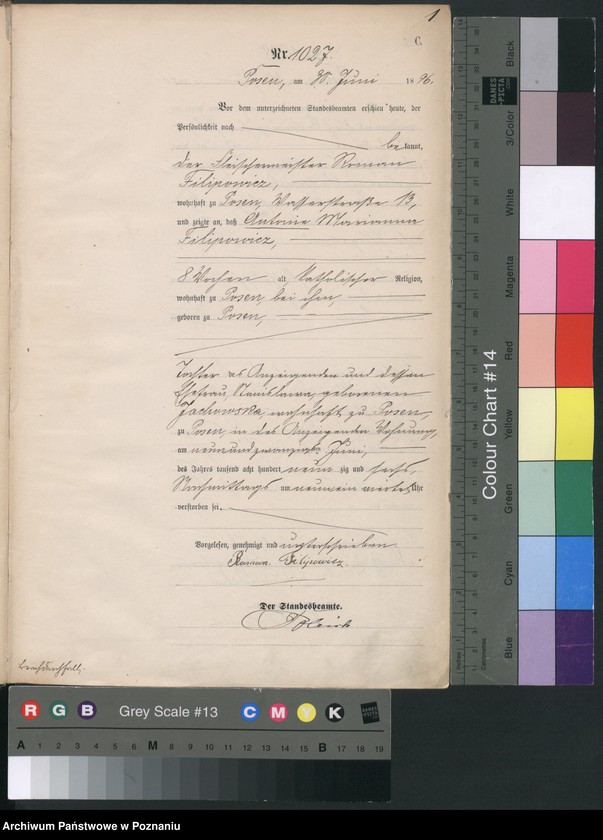 1
C.
Nr. 1027.
Posen, am 30. Juni 1896.
Vor dem unterzeichneten Standesbeamten erschien heute, der
Persönlichkeit nach
be kannt,
der Fleischermeister Roman
Filipowicz,
wohnhaft zu Posen, Wasserstraße 13,
und zeigte an, daß Antonie Marianna
Filipowicz,
8 Wochen alt, katholischer Religion,
wohnhaft zu Posen, bei ihm,
geboren zu Posen,
Tochter des Anzeigenden und dessen
Ehefrau, Stanislawa, geborenen
Jachowska, wohnhaft zu Posen,
zu Posen, in des Anzeigenden Wohnung,
am neunundzwanzigsten Juni,
des Jahres tausend acht hundert neun zig und sechs,
Nachmittags um neunein viertel Uhr
verstorben sei.
Vorgelesen, genehmigt und unterschrieben
Roman Filipowicz.
Der Standesbeamte.
Brechdurchfall.
Colour Chart #14
Black
3/Color
White
Magenta
Red
Yellow
Green
Cyan
Blue
DANES
PICTA
.COM
Inches
Centimetres
R G B Grey Scale #13 C M Y K
A 1 2 3 4 5 6 M 8 9 10 11 12 13 14 15 B 17 18 19
Archiwum Państwowe w Poznaniu